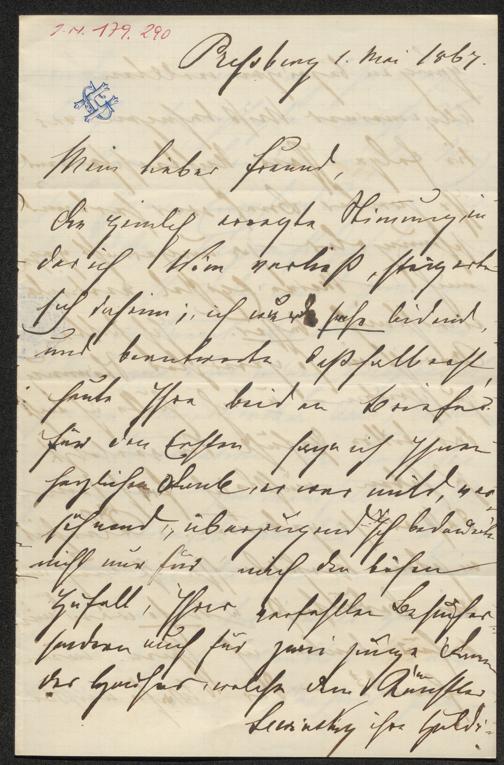 I.N. 179.290
Preßburg 1. Mai 1867.
Mein lieber Freund,
die ziemlich erregte Stimmung, in
der ich Wien verließ, steigerte
sich daheim; ich wurde sehr leidend,
und beantworte deßhalb erst
heute Ihre beiden Briefe.
Für den Ersten sage ich Ihnen
herzlichen Dank, er war mild, ver
söhnend, überzeugend. Ich bedauerte
nicht nur für mich den bösen
Zufall, Ihres verfehlten Besuches
sondern auch für zwei junge Damen
des Hauses, welche dem Künstler
Lewinsky ihre Huldi-